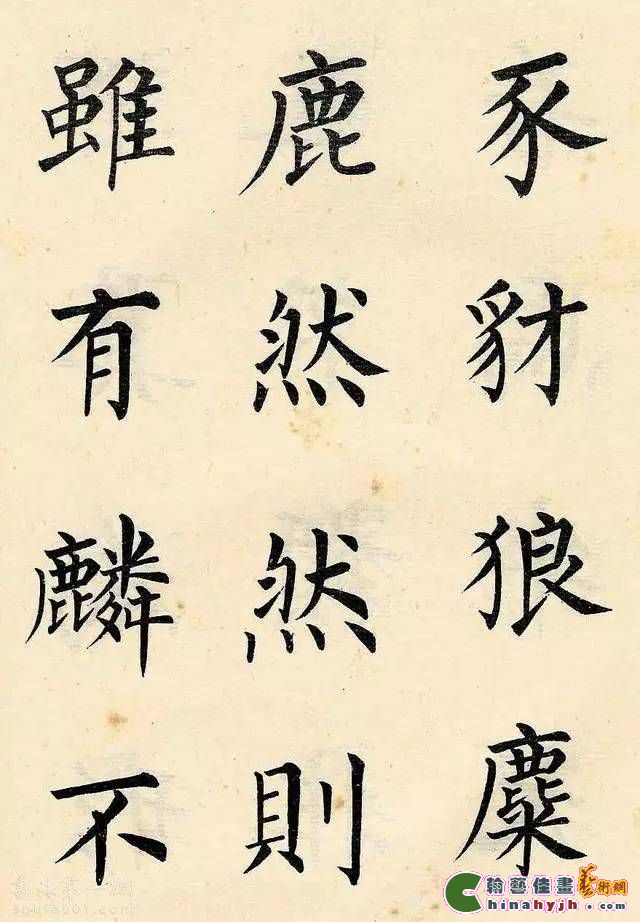 豕豺狼麋
鹿然然則
雖有麟不
翰藝佳畫藝術網
Chinahyjh.com